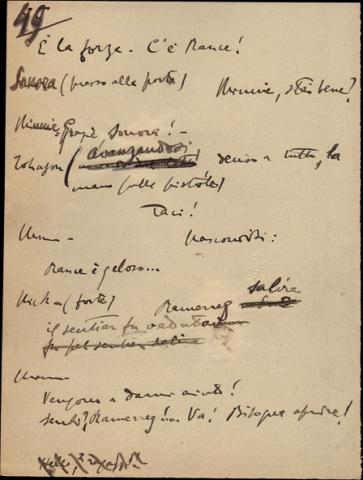 49
È la forza. C'è Rance!
Sonora (presso alla porta) Minnie, stai bene?
Minnie - Grazie Sonora! -
Johnson (avanzandosi, deciso a tutto, la
mano sulle pistole)
Taci!
Minn - Nasconditi:
Rance è geloso...
Nick - (forte) Ramerrez salire
il sentier fu veduto
Minn -
Vengono a darmi aiuto!
Senti? Ramerrez!... Va! Bisogna aprire!